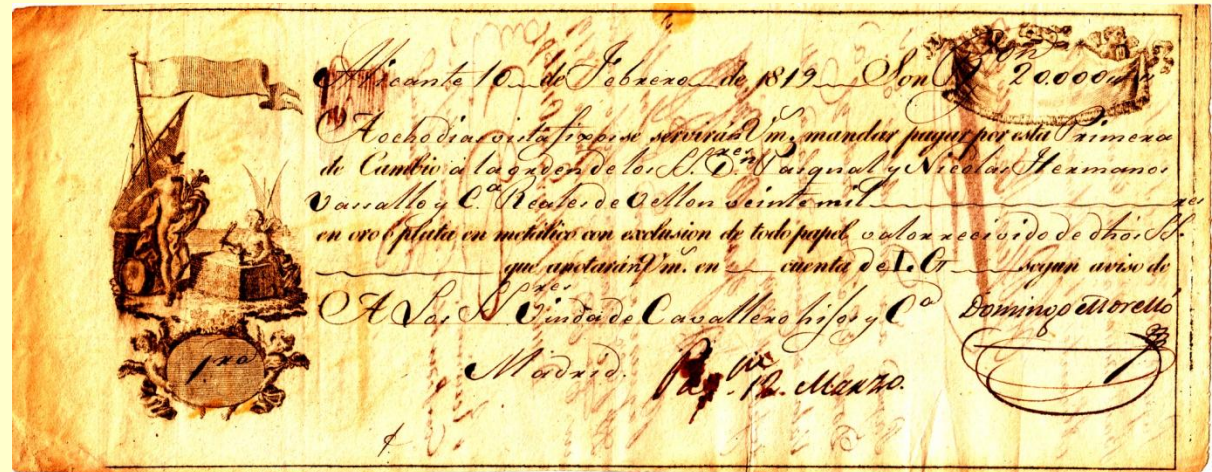 Alicante 10 de Febrero de 1819 Son Ron 20.000
A ocho dias vista fixos se servirán Vms. mandar pagar por esta Primera
de Cambio á la orden de los S.res Dn. Pasqual y Nicolas Hermanos
Vassallo y C.a Reales de Vellon veinte mil
en oro ó plata en metálico con exclusion de todo papel valor recivido de dhos SS.
que anotarán Vms. en cuenta de L. G segun aviso de
A Los S.res Viuda de Cavallero hijos y C.a Domingo Morelló
Madrid. 12. Marzo.
1.ra